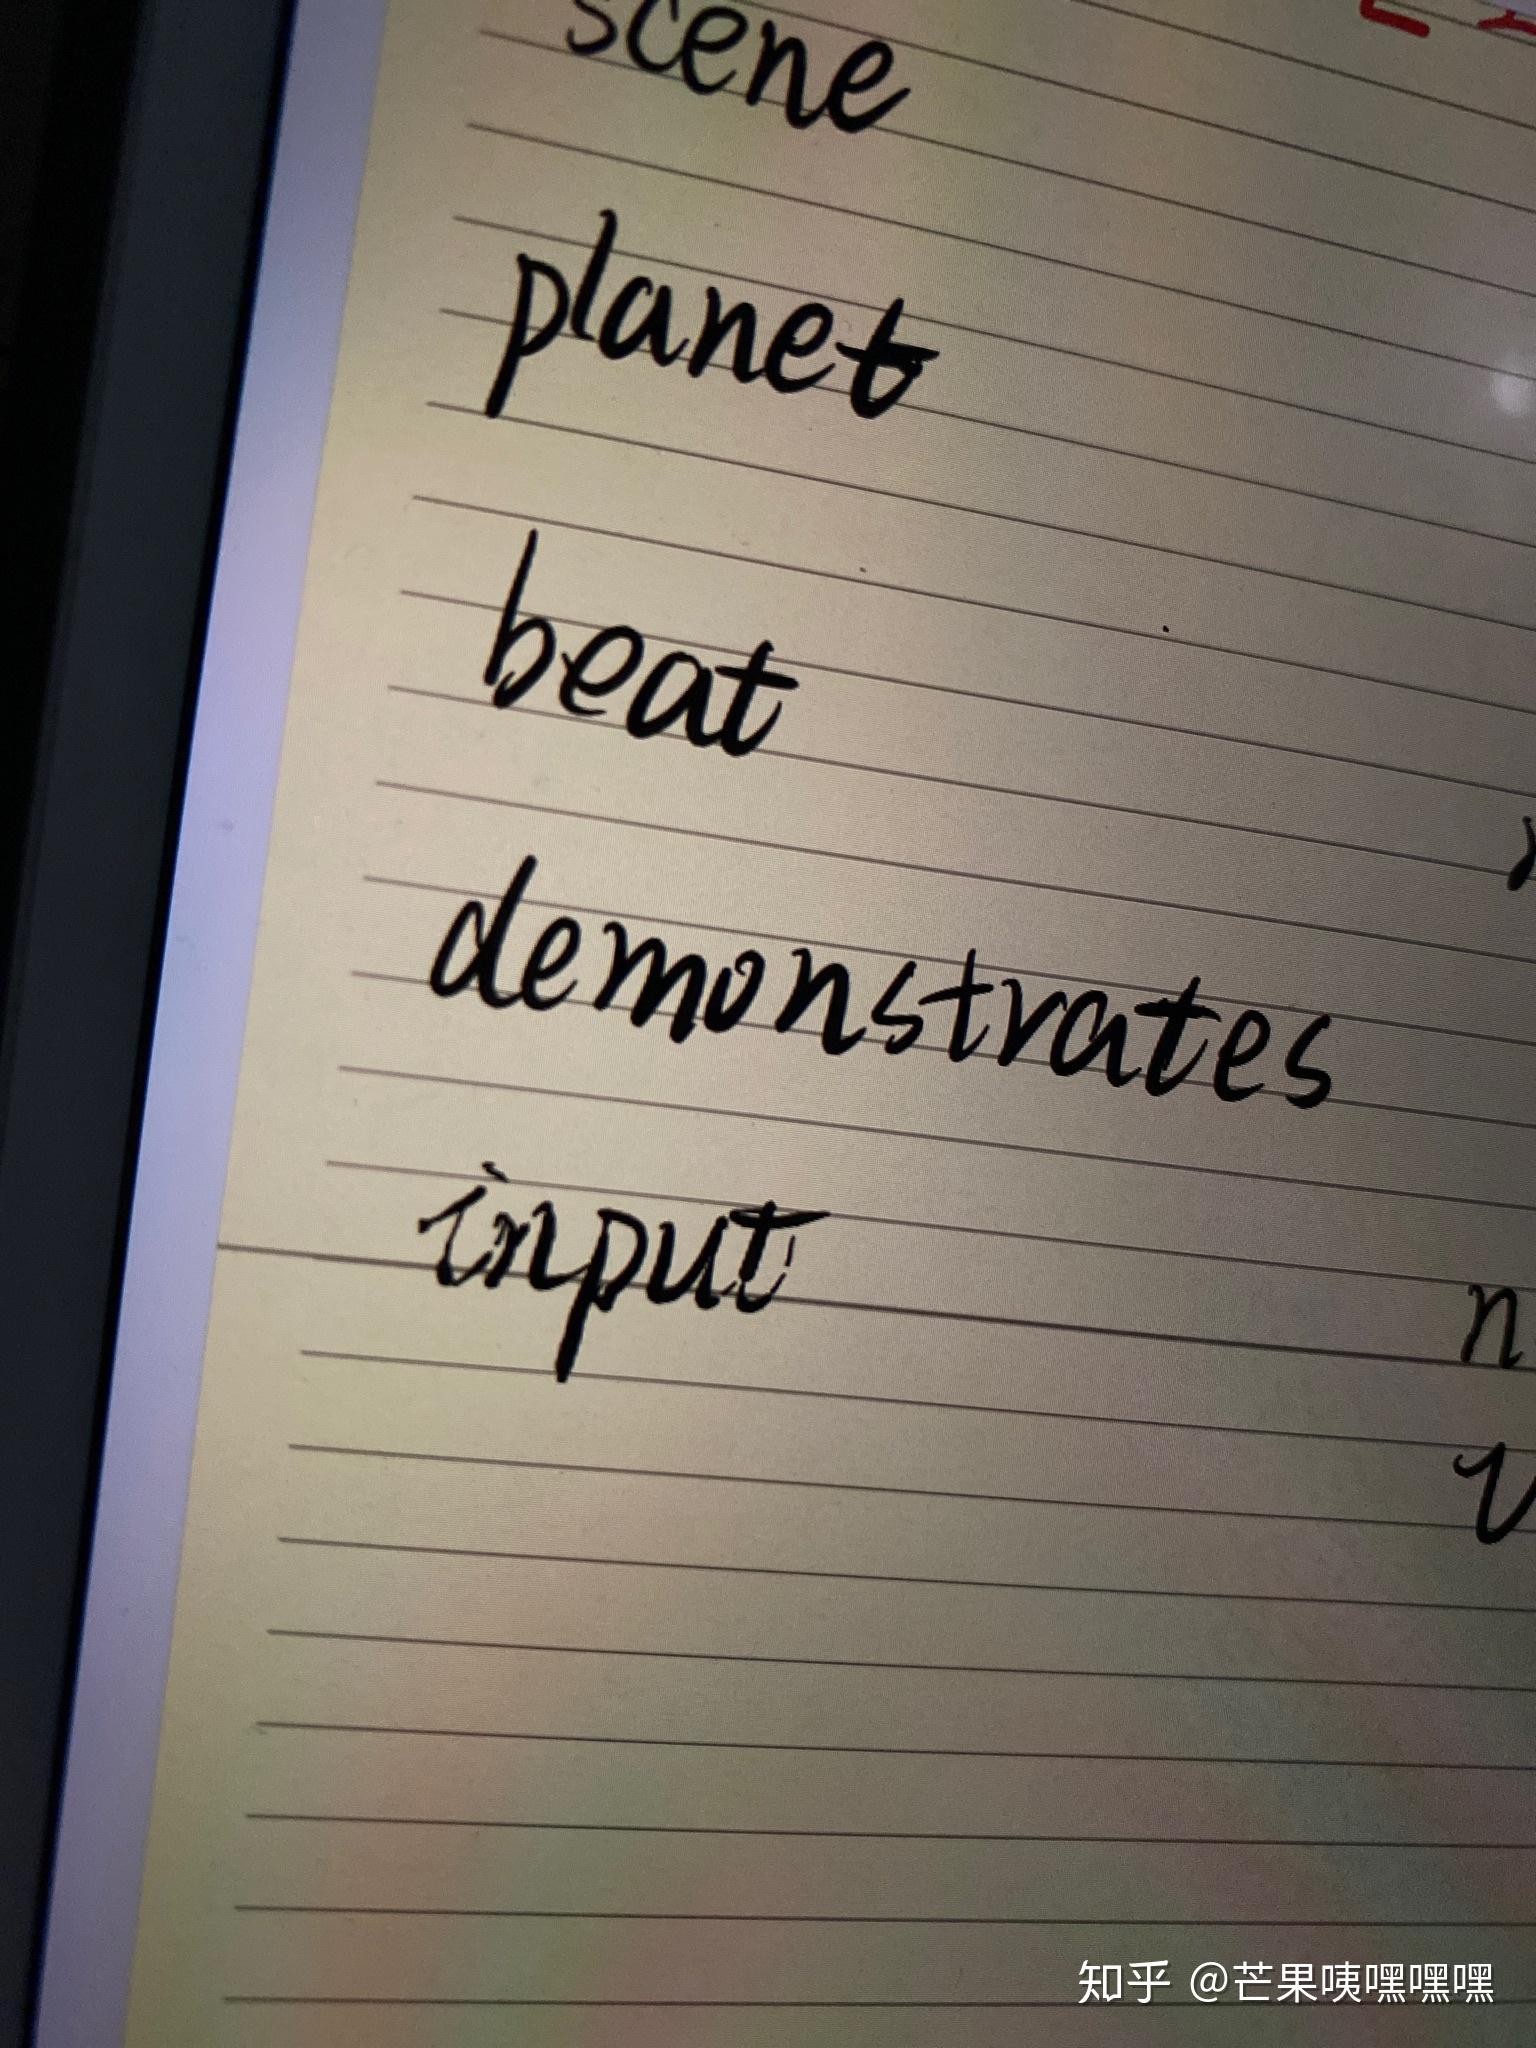 scene
planet
beat
demonstrates
input
n
知乎 @芒果咦嘿嘿嘿